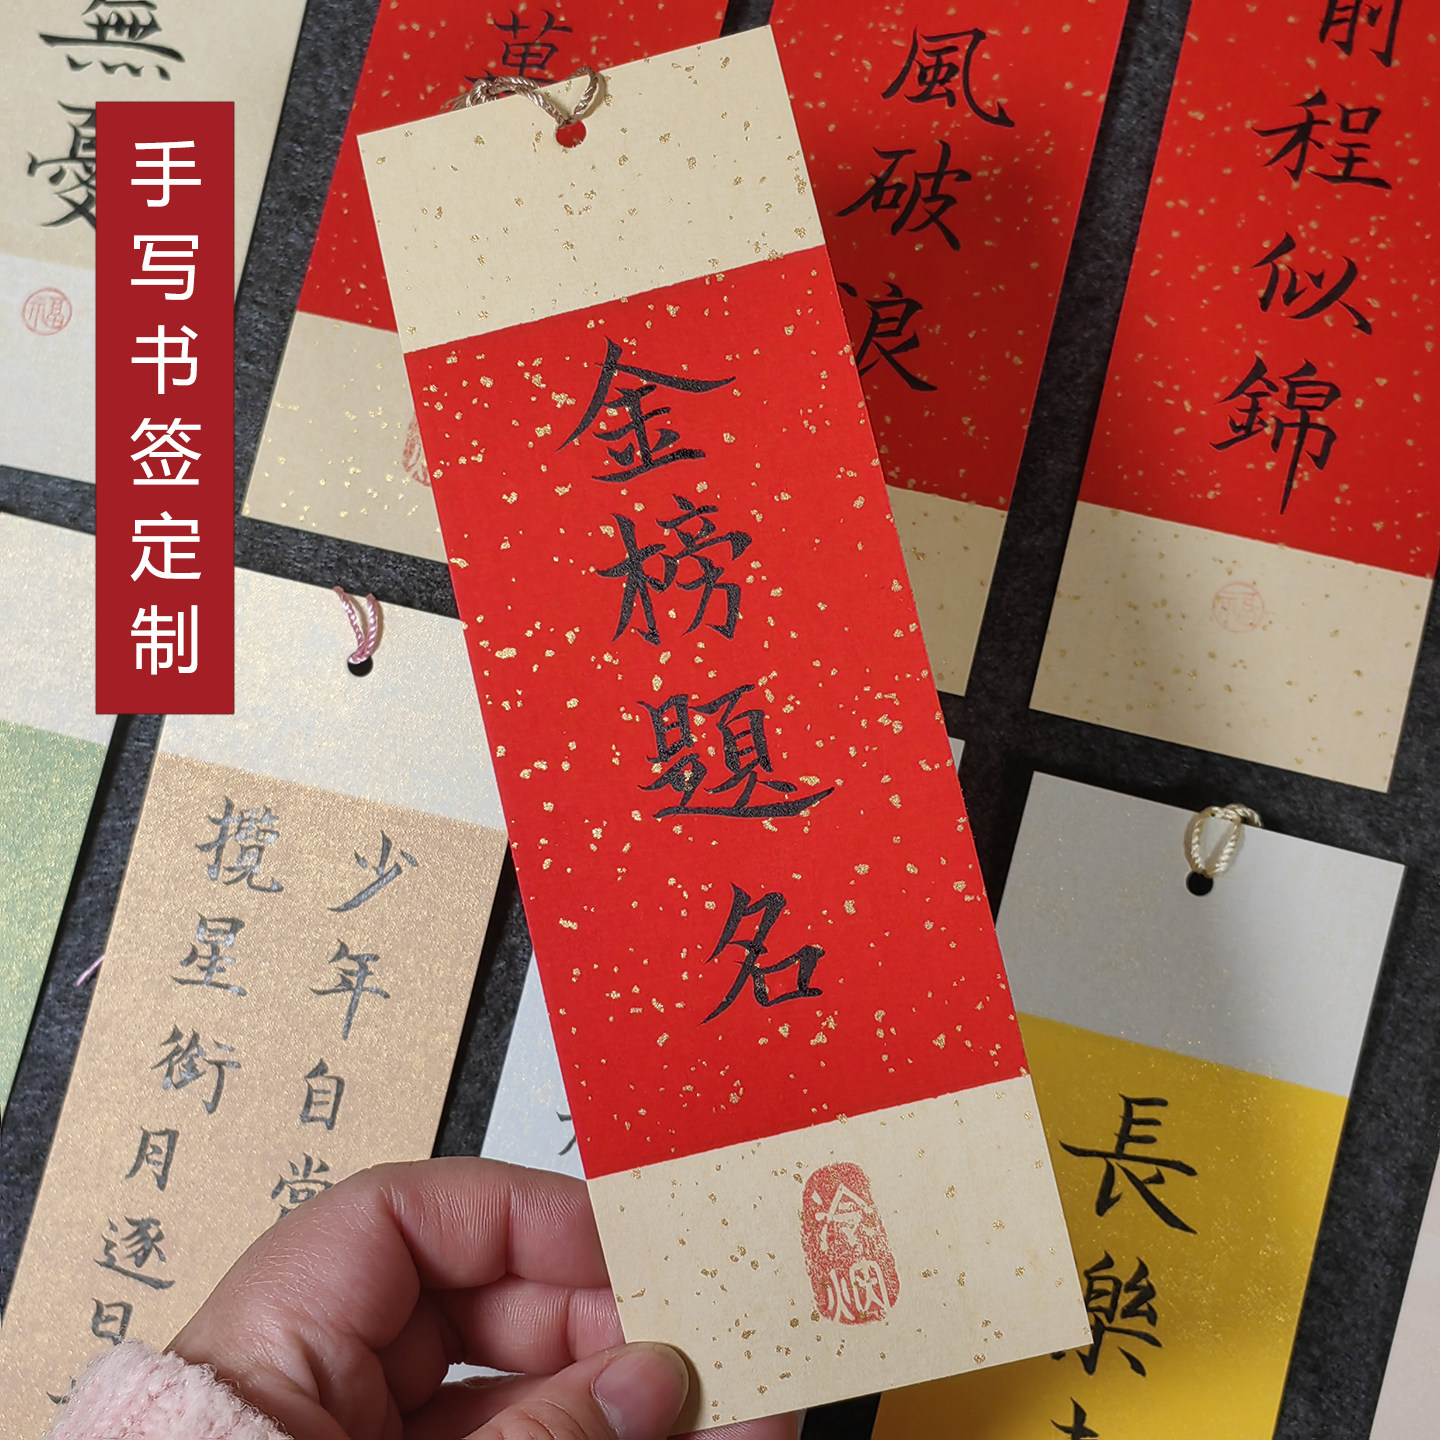 手写书签定制
金榜题名
冷烟
無憂
福
萬
風破浪
前程似錦
福
少年自當
攬星銜月逐日
長樂